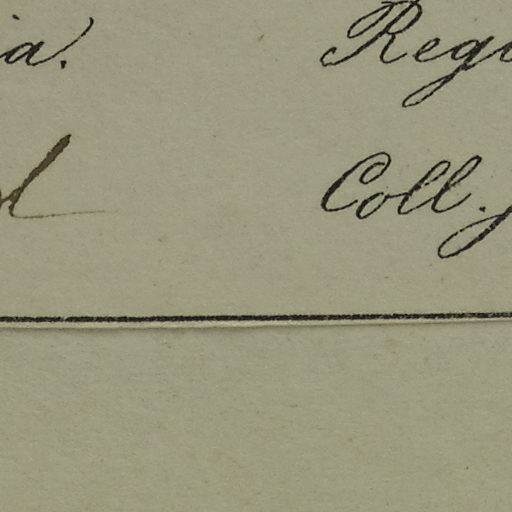 ia. Regi
Coll.